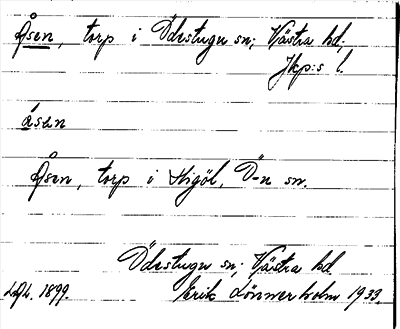 Åsen, torp i Ödestugu sn; Västra hd;
Jkp:s l.
åsen
Åsen, torp i Stigöl, Ö-u sn.
Ödestugu sn; Västra hd
1899. Erik Lönnerholm 1933.